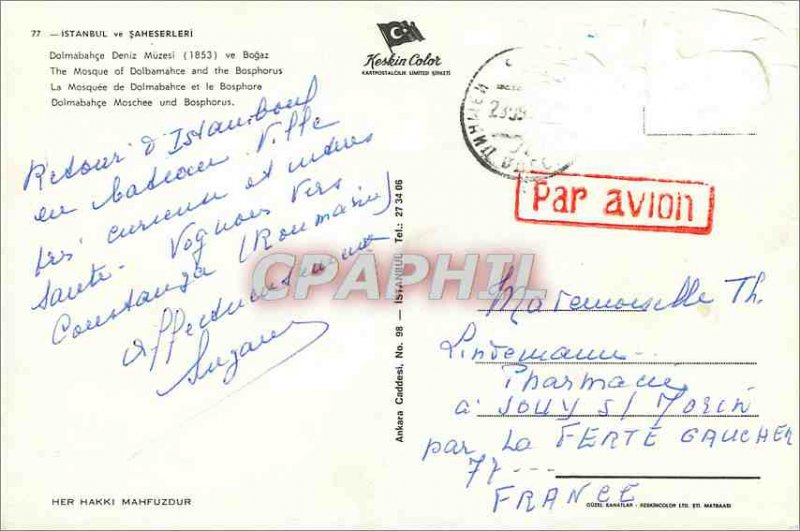 77 — İSTANBUL ve ŞAHESERLERİ
Dolmabahçe Deniz Müzesi (1853) ve Boğaz
The Mosque of Dolbamahce and the Bosphorus
La Mosquée de Dolmabahce et le Bosphore
Dolmabahçe Moschee und Bosphorus.
Keskin Color
KARTPOSTALCILIK LİMİTED ŞİRKETİ
Par avion
Retour d'Istamboul
en bateau Ville
très curieuse et intéres
sante - Voguons vers
Constanza (Roumanie)
Affectueusement
Suzanne
CPARPHIL
Ankara Caddesi, No. 98 — İSTANBUL Tel.: 27 34 06
Mademoiselle Th.
Lindemann
Pharmacie
à JOUY S/ MORIN
par LA FERTE GAUCHER
77 ---
FRANCE
HER HAKKI MAHFUZDUR
GÜZEL SANATLAR - KESKİNCOLOR LTD. ŞTİ. MATBAASI